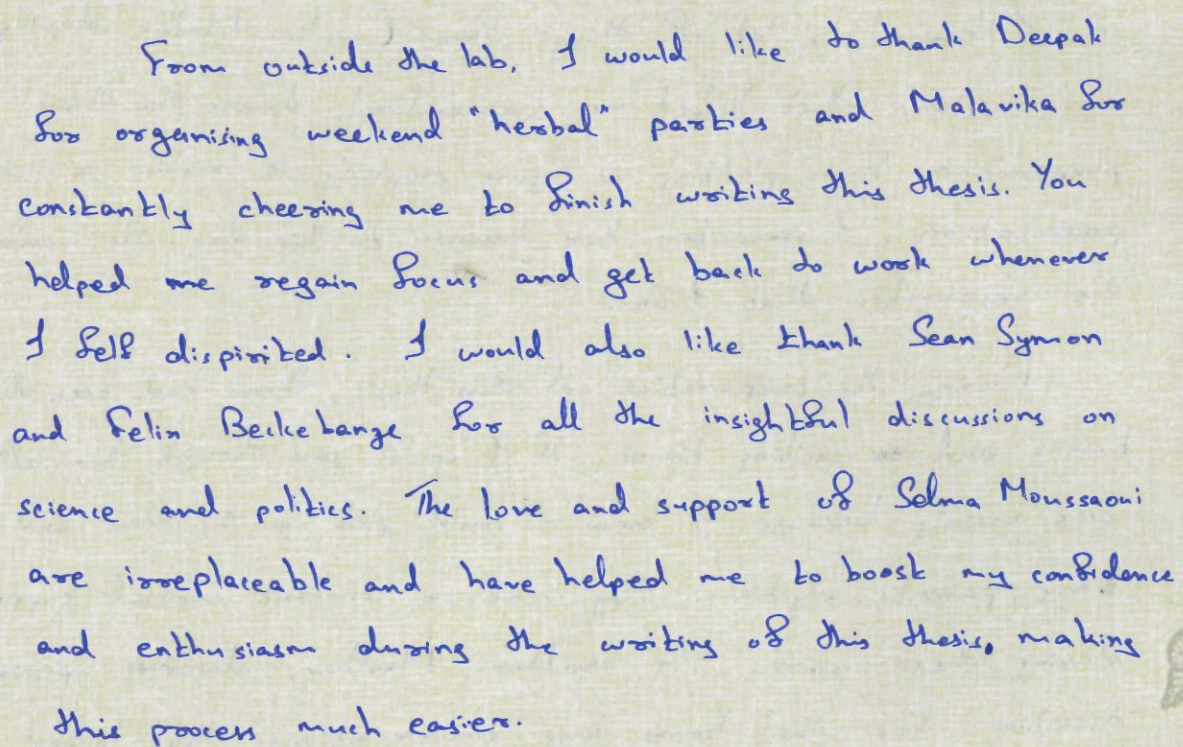 From outside the lab, I would like to thank Deepak
for organising weekend "herbal" parties and Malavika for
constantly cheering me to finish writing this thesis. You
helped me regain focus and get back to work whenever
I felt dispirited. I would also like thank Sean Symon
and Felix Beckebanze for all the insightful discussions on
science and politics. The love and support of Selma Moussaoui
are irreplaceable and have helped me to boost my confidence
and enthusiasm during the writing of this thesis, making
this process much easier.